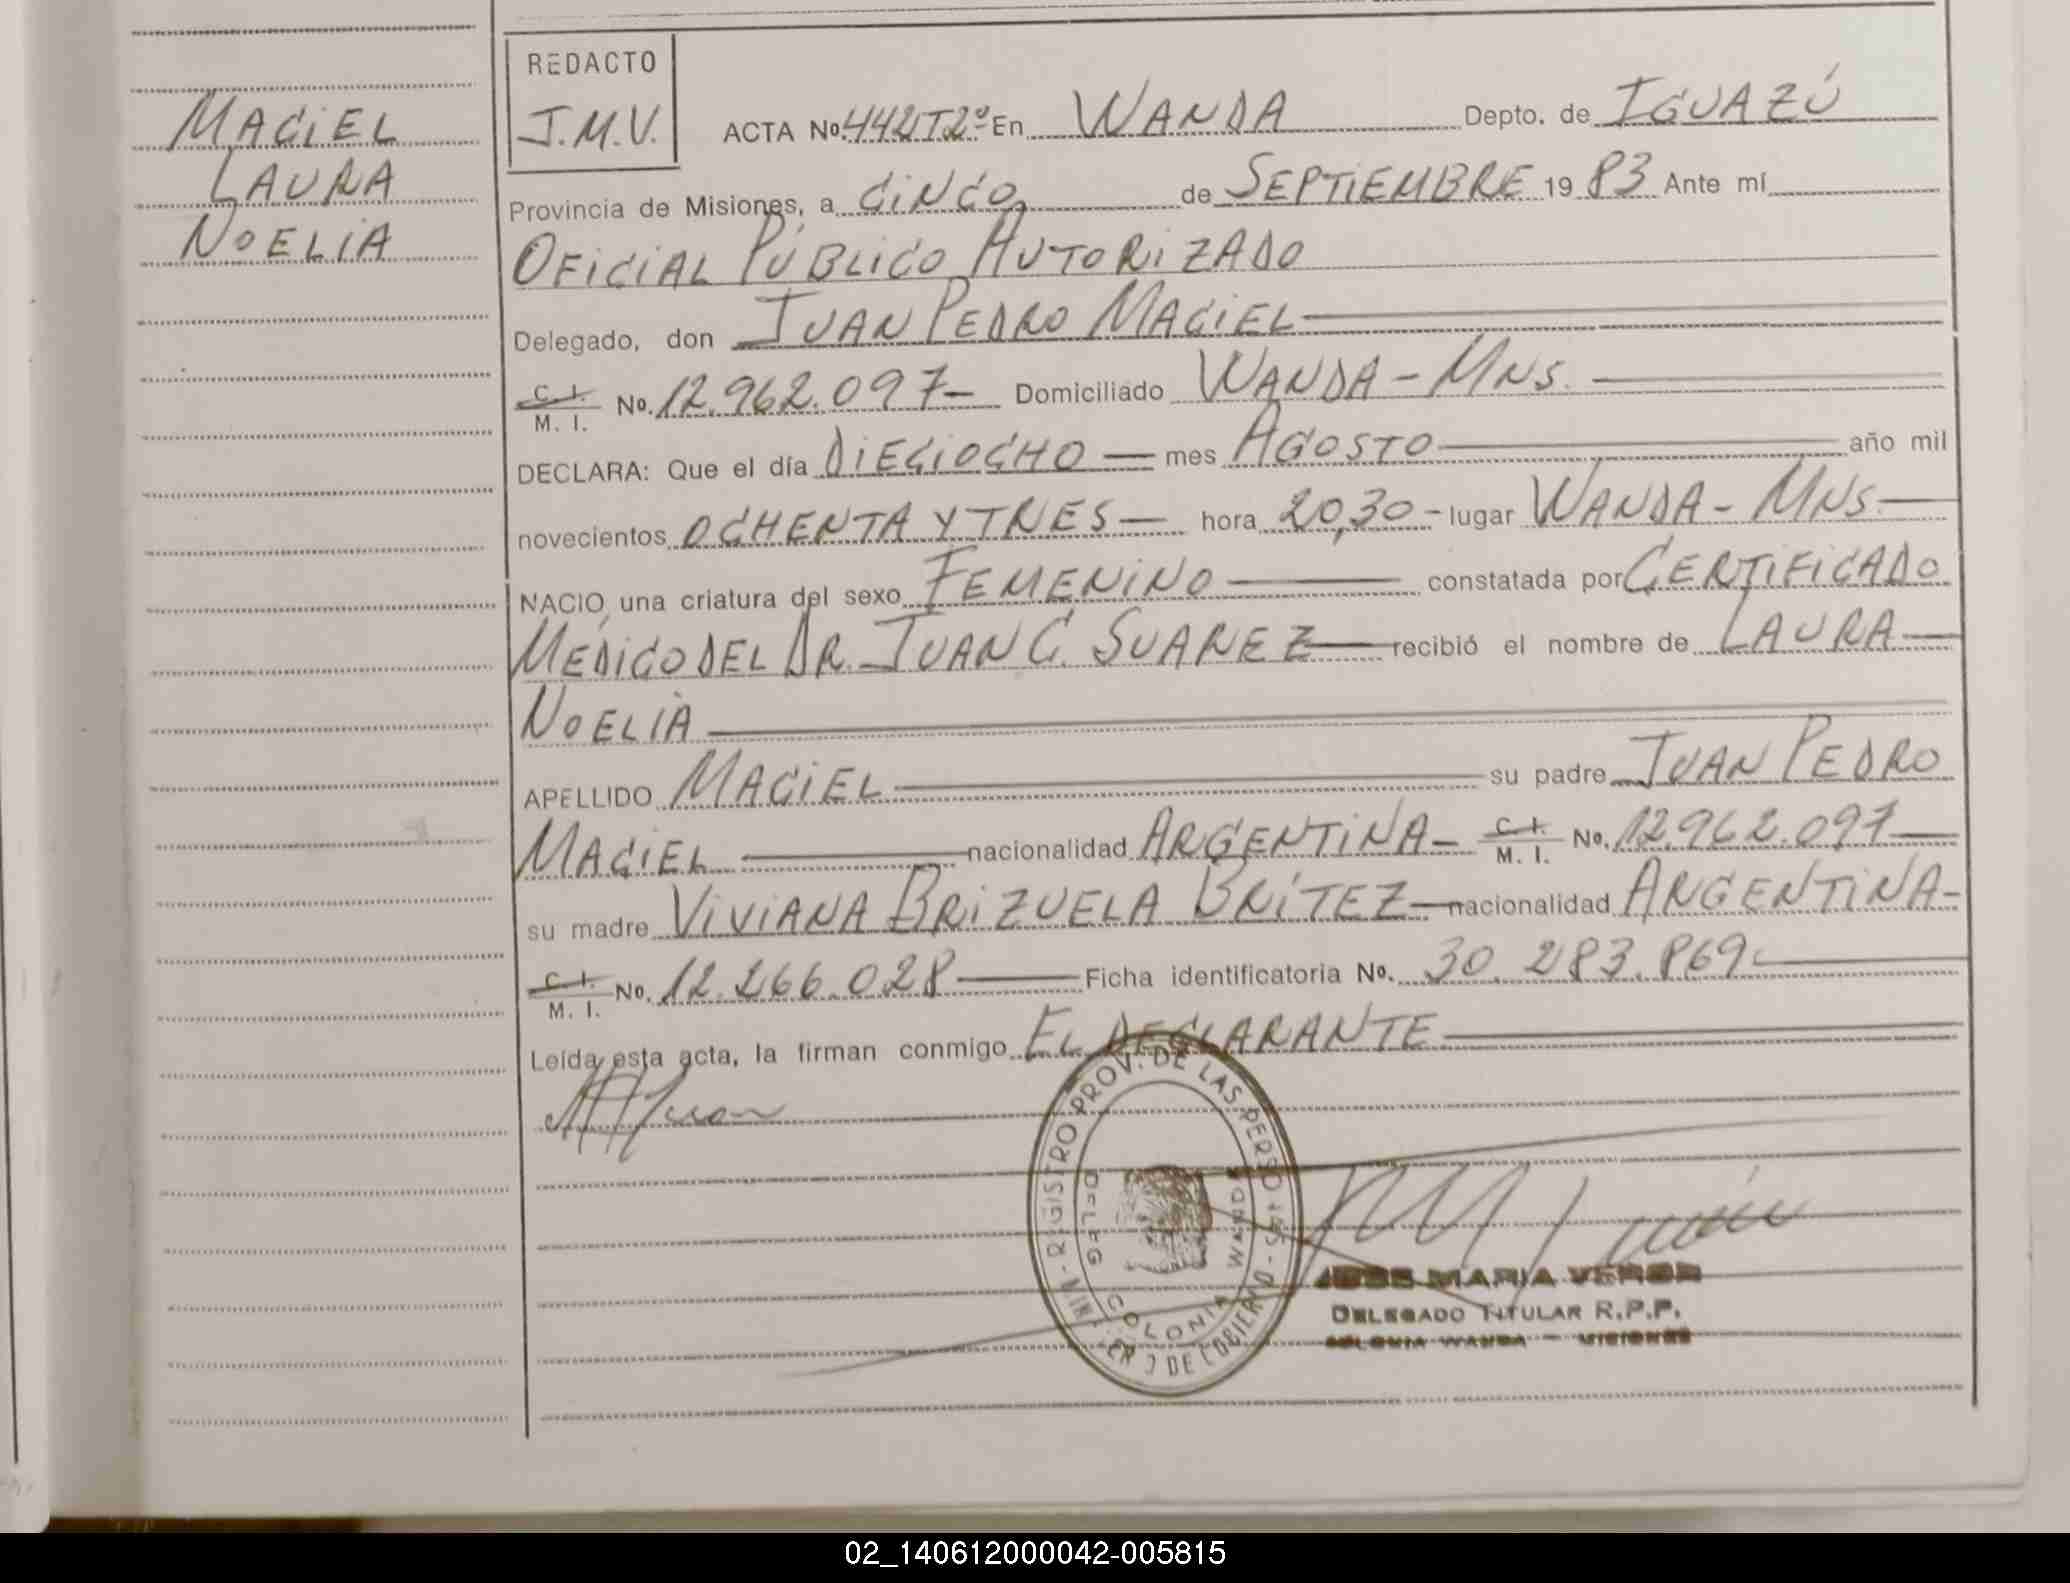 MACIEL
LAURA
NOELIA
REDACTO
J.M.V.
ACTA No. 442 T2º En WANDA Depto. de IGUAZÚ
Provincia de Misiones, a CINCO de SEPTIEMBRE 19 83 Ante mí
OFICIAL PÚBLICO AUTORIZADO
Delegado, don JUAN PEDRO MACIEL
C. I. M. I. No. 12.962.097- Domiciliado WANDA - MNS.
DECLARA: Que el día DIECIOCHO mes AGOSTO año mil
novecientos OCHENTA Y TRES hora 20,30 - lugar WANDA - MNS
NACIO una criatura del sexo FEMENINO constatada por CERTIFICADO
MÉDICO DEL DR. JUAN C. SUAREZ recibió el nombre de LAURA
NOELIA
APELLIDO MACIEL su padre JUAN PEDRO
MACIEL nacionalidad ARGENTINA - C. I. M. I. No. 12.962.097
su madre VIVIANA BRIZUELA BRÍTEZ nacionalidad ARGENTINA -
C. I. M. I. No. 12.266.028 Ficha identificatoria No. 30.283.869
Leída esta acta, la firman conmigo EL DECLARANTE
REGISTRO PROV. DE LAS PERSONAS
DELEG COLONIA WANDA
MARIA
DELEGADO TITULAR R.P.P.
COLONIA WANDA - MISIONES
02_140612000042-005815